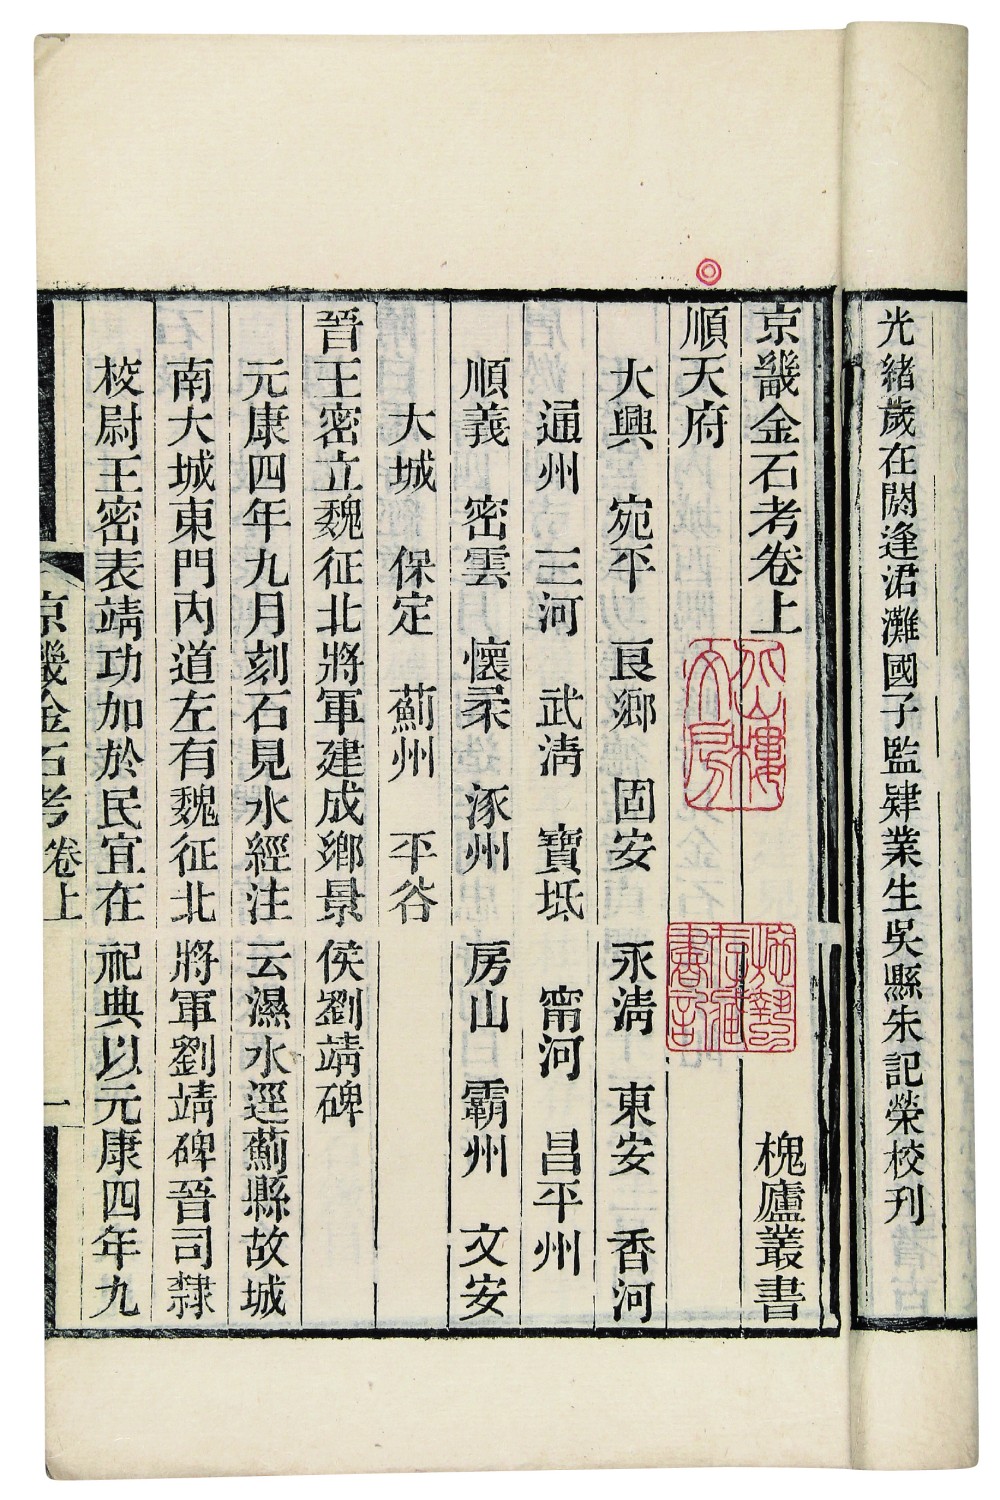 光緒歲在閼逢涒灘國子監肄業生吳縣朱記榮校刋
京畿金石考卷上 槐廬叢書
順天府
大興 宛平 良鄉 固安 永淸 東安 香河
通州 三河 武淸 寶坻 甯河 昌平州
順義 密雲 懷柔 涿州 房山 霸州 文安
大城 保定 薊州 平谷
晉王密立魏征北將軍建成鄉景侯劉靖碑
元康四年九月刻石見水經注云濕水逕薊縣故城
南大城東門內道左有魏征北將軍劉靖碑晉司隸
校尉王密表靖功加於民宜在祀典以元康四年九
京畿金石考 卷上 一